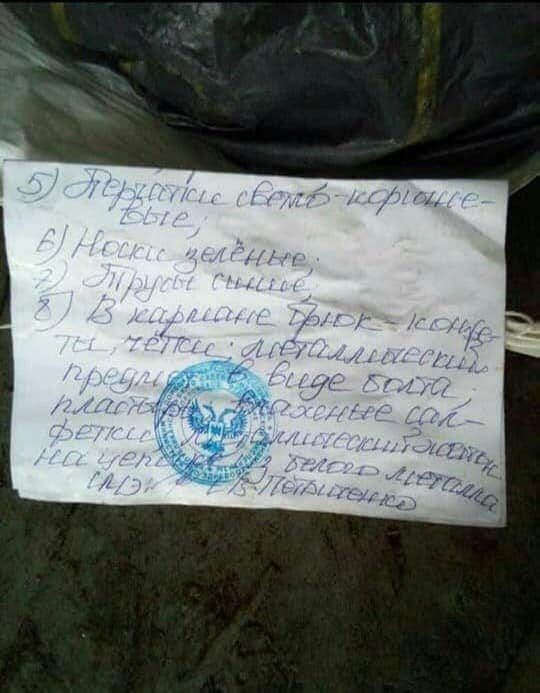 5) Перчатки светло-коричне-
вые;
6) Носки зелёные;
7) Трусы синие;
8) В кармане брюк-конфе-
ты, чётки; металлический
предмет в виде болта,
пластырь, влажные сал-
фетки, металлический жетон
на цепочке из белого металла